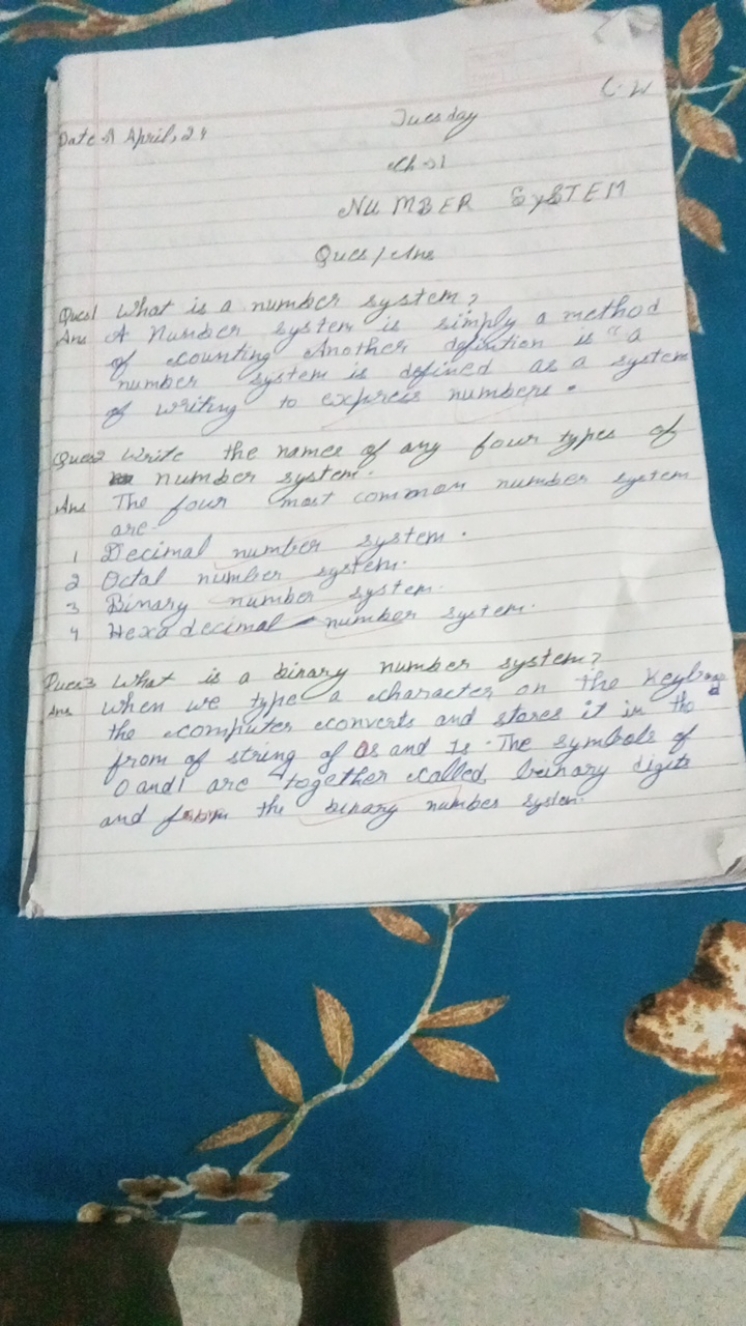 C-W
Date April, 24 Tuesday
Ch 1
NUMBER SYSTEM
Ques/Ans
Ques1 What is a number system?
Ans A Number system is simply a method
of counting Another defination is "a
number system is defined as a system
of writing to express numbers.
Ques2 Write the names of any four types of
number system.
Ans The four most common number system
are-
1 Decimal number system.
2 Octal number system.
3 Binary number system.
4 Hexadecimal number system.
Ques3 What is a binary number system?
Ans When we type a character on the Keyboard
the computer converts and stores it in the
from of string of 0s and 1s. The symbols of
0 and 1 are together called, beinary digits
and form the binary number system.